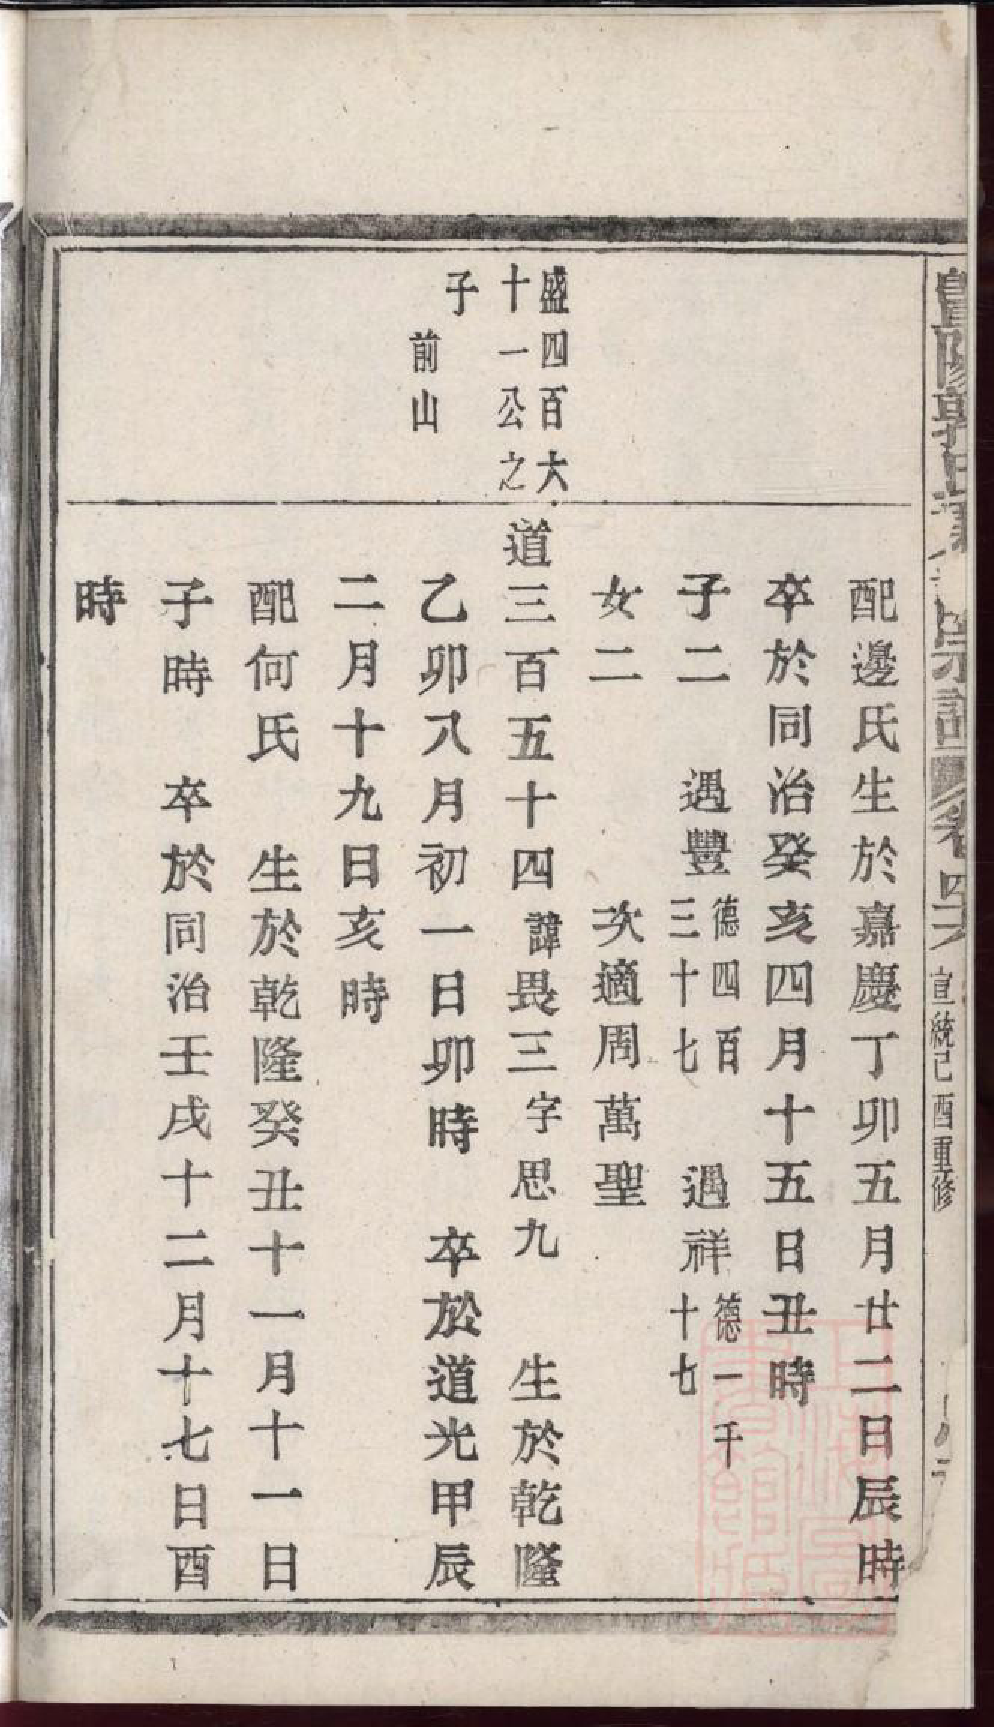 暨陽郭氏 宗譜 卷四 宣統己酉重修
配邊氏生於嘉慶丁卯五月廿二日辰時
卒於同治癸亥四月十五日丑時
子二 遇豐 德四百三十七 遇祥 德一千十七
女二 次適周萬聖
盛四百六
十一公之
子
前山
道三百五十四 諱畏三 字思九 生於乾隆
乙卯八月初一日卯時 卒於道光甲辰
二月十九日亥時
配何氏 生於乾隆癸丑十一月十一日
子時 卒於同治壬戌十二月十七日酉
時